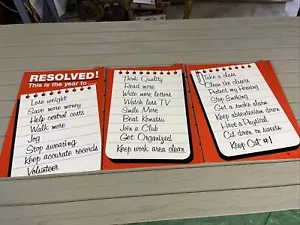 RESOLVED!
This is the year to...
Lose weight
Save more money
Help control costs
Walk more
Jog
Stop swearing
Keep accurate records
Volunteer
Think Quality
Read more
Write more letters
Watch less TV
Smile More
Beat Komatsu
Join a Club
Get Organized
Keep work area clean
Take a class
Clean the closets
Protect my Hearing
Stop Smoking
Get a smoke alarm
Keep absenteeism down
Have a Physical
Cut down on sweets
Keep Cat #1